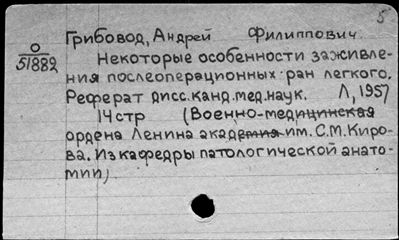 5
Грибовод, Андрей Филиппович.
О
51882
Некоторые особенности заживле-
ния послеоперационных ран легкого.
Реферат дисс. канд. мед. наук. Л, 1957
14 стр (Военно-медицинская
ордена Ленина академия им. С.М. Киро-
ва. Из кафедры патологической анато-
мии)